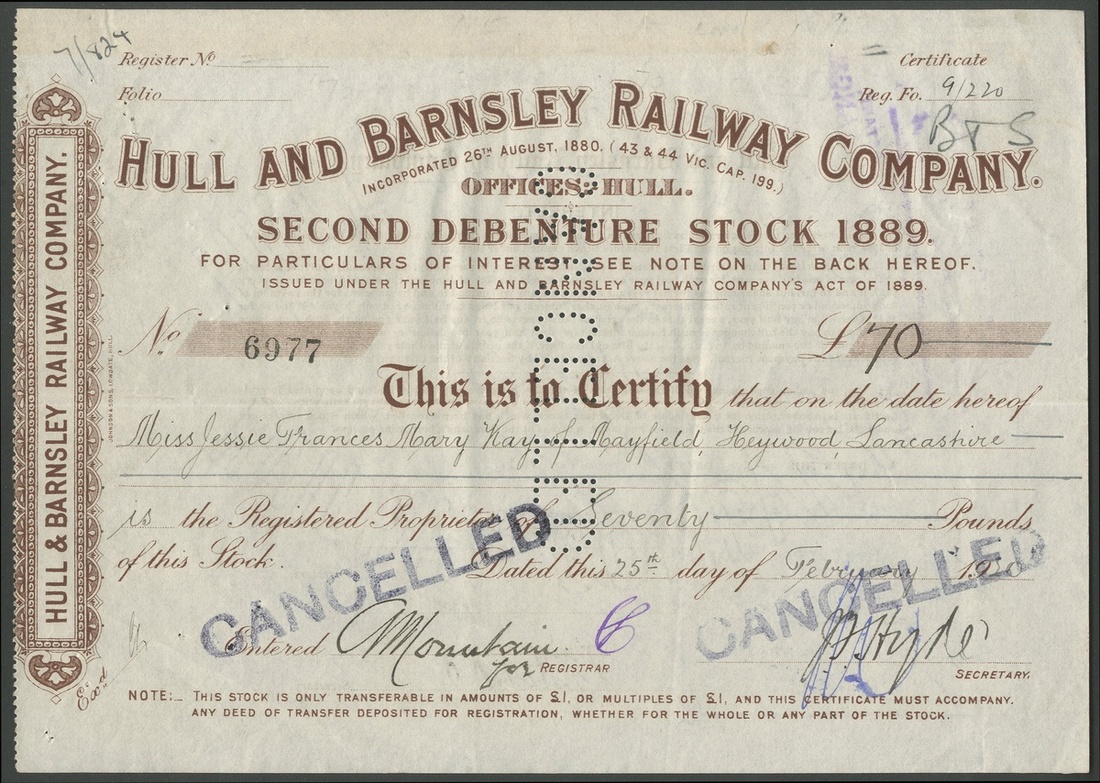 7/824
Register No
Certificate
Folio
Reg. Fo. 9/220
B T S
HULL AND BARNSLEY RAILWAY COMPANY.
INCORPORATED 26TH AUGUST, 1880. (43 & 44 VIC. CAP. 199.)
OFFICES: HULL.
SECOND DEBENTURE STOCK 1889.
FOR PARTICULARS OF INTEREST SEE NOTE ON THE BACK HEREOF.
ISSUED UNDER THE HULL AND BARNSLEY RAILWAY COMPANY'S ACT OF 1889.
No 6977
£70
This is to Certify that on the date hereof
Miss Jessie Frances Mary Kay of Mayfield, Heywood, Lancashire
is the Registered Proprietor of Seventy Pounds
of this Stock. Dated this 25th day of February
CANCELLED
CANCELLED
CANCELLED
Entered Mountain
for REGISTRAR
Hyde
SECRETARY.
Exd
NOTE:- THIS STOCK IS ONLY TRANSFERABLE IN AMOUNTS OF £1, OR MULTIPLES OF £1, AND THIS CERTIFICATE MUST ACCOMPANY
ANY DEED OF TRANSFER DEPOSITED FOR REGISTRATION, WHETHER FOR THE WHOLE OR ANY PART OF THE STOCK.
HULL & BARNSLEY RAILWAY COMPANY.
JOHNSON & SONS, LOWGATE, HULL